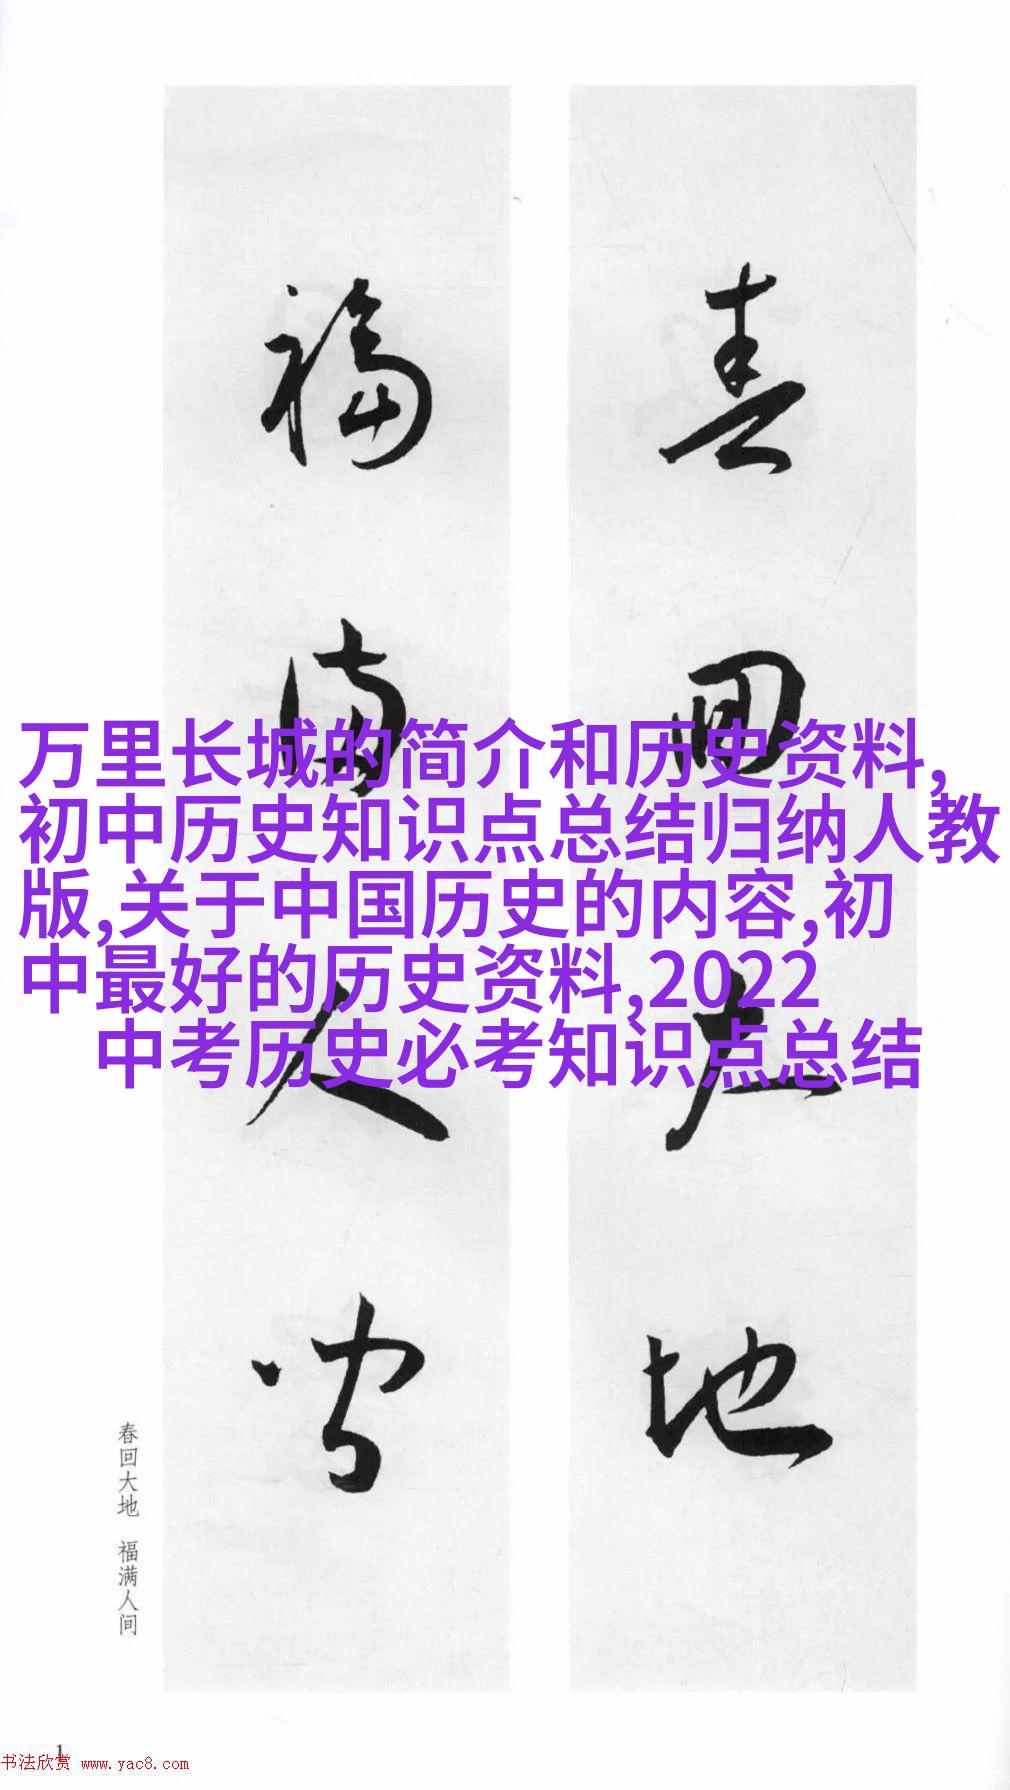 春回大地
福满人间
万里长城的简介和历史资料,
初中历史知识点总结归纳人教
版,关于中国历史的内容,初
中最好的历史资料,2022
中考历史必考知识点总结
春回大地 福满人间
1
书法欣赏 www.yac8.com